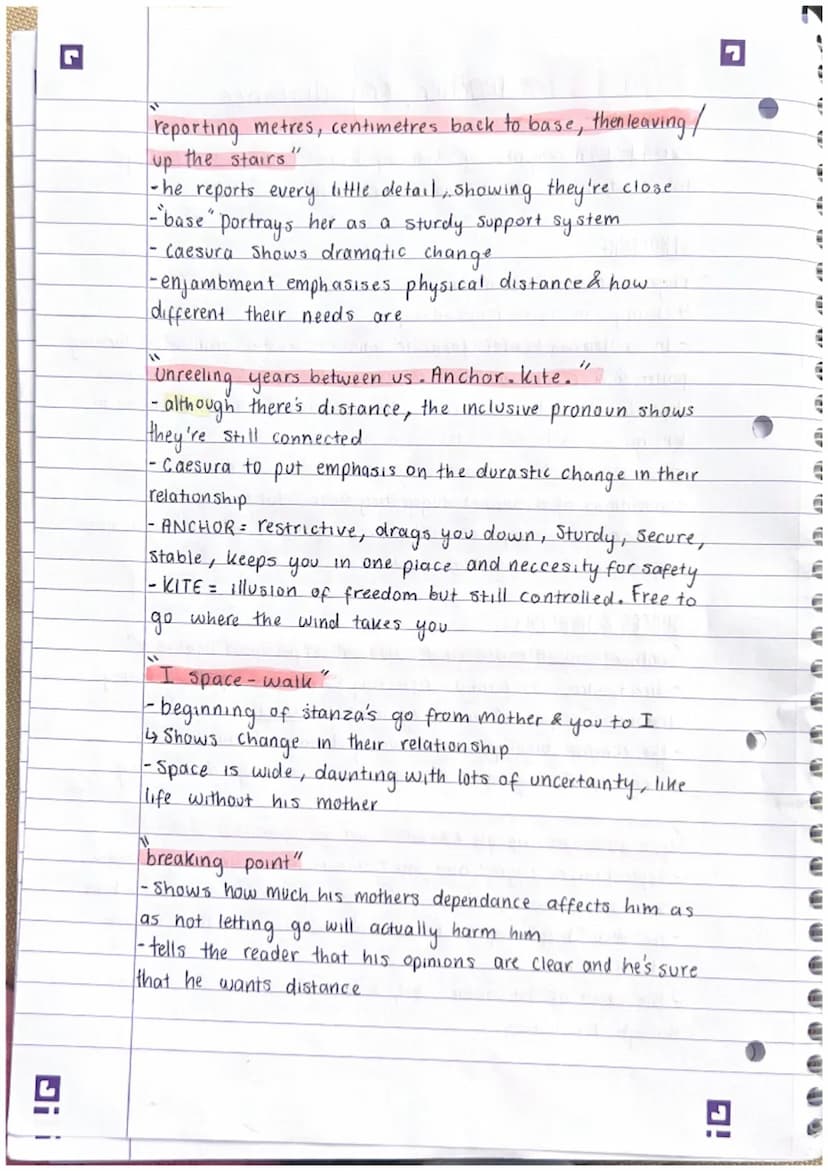 "reporting metres, centimetres back to base, then leaving/
up the stairs"
-he reports every little detail, showing they're close
-"base" portrays her as a sturdy support system
- Caesura shows dramatic change
-enjambment emphasises physical distance & how
different their needs are
"Unreeling years between us. Anchor. Kite."
- although there's distance, the inclusive pronoun shows
they're still connected
- Caesura to put emphasis on the durastic change in their
relationship
- ANCHOR = restrictive, drags you down, sturdy, secure,
stable, keeps you in one place and neccesity for safety
- KITE = illusion of freedom but still controlled. Free to
go where the wind takes you
"I space-walk"
- beginning of stanza's go from mother & you to I
↳ Shows change in their relationship
- Space is wide, daunting with lots of uncertainty, like
life without his mother
"breaking point"
- Shows how much his mothers dependance affects him as
as not letting go will actually harm him
- tells the reader that his opinions are clear and he's sure
that he wants distance